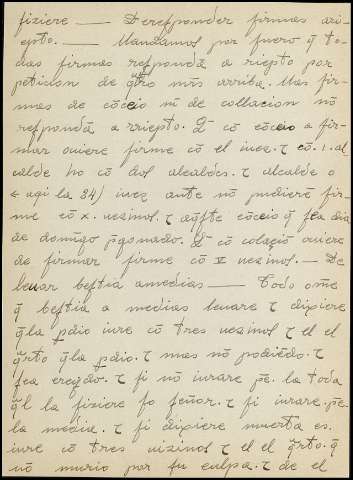 fiziere — De refponder firmas a riepto. — Mandamos por fuero q̄ todas firmas refpondā a riepto por peticion de q̄tro mrs arriba. Mas firmas de cōceio nī de collacion nō refpondā a rriepto. Q̄ cō cōceio a firmar ouiere firme cō el iuez. τ cō. i. alcalde ho cō dos alcaldes. τ alcalde o
← aqi la 34) iuez ante nō pudiere firme cō x. uezinos. τ aq̄fte cōceio q̄ fea dia de domīgo p̄gonado. Q̄ cō colaciō ouiere de firmar firme cō V uezinos. — De leuar beftia amedias — Todo ome q̄ beftia a medias leuare τ dixiere q̄ la pdio iure cō tres uezinos τ el el q̄rto q̄ la pdio. τ mas nō podiēdo. τ fea creydo. τ fi nō iurare pe. la toda q̄l la fiziere fo feñor. τ fi iurare. pe. la media. τ fi dixiere muerta es. iure cō tres uizinos τ el el q̄rto. q̄ nō murio por fu culpa. τ de el